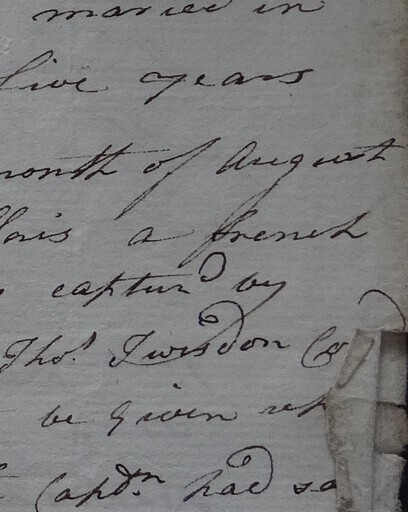 maried in
five years
month of August
a french
captur'd by
Thos. Twisden
be given
Captn. had